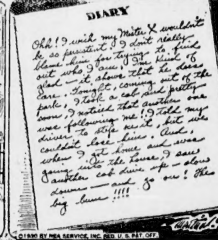 DIARY
Ohh! I wish my Mister X wouldn't
be so persistent. I don't really
blame him for trying to find
out who I am. I'm kind of
glad — it shows that he does
care. Tonight, coming out of the
park, I took a cab and pretty
soon I noticed that another one
was following me! I told my
driver to step on it but we
couldn't lose him. And,
when I got home and was
going into the house, I saw
another cab drive up — slow
down — and go on! The
big bum!!!!
©1930 BY NEA SERVICE, INC. REG. U.S. PAT. OFF.